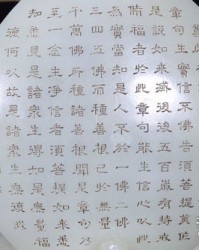 章句生實信不佛告須菩提莫作
是說如來滅後後五百歲有持戒
修福者於此章句能生信心以此
為實當知是人不於一佛二佛
三四五佛而種善根已於無量
千萬佛所種諸善根聞是章句乃
至一念生淨信者須菩提如來
悉知悉見是諸眾生得如是無量福
德何以故是諸眾生無復